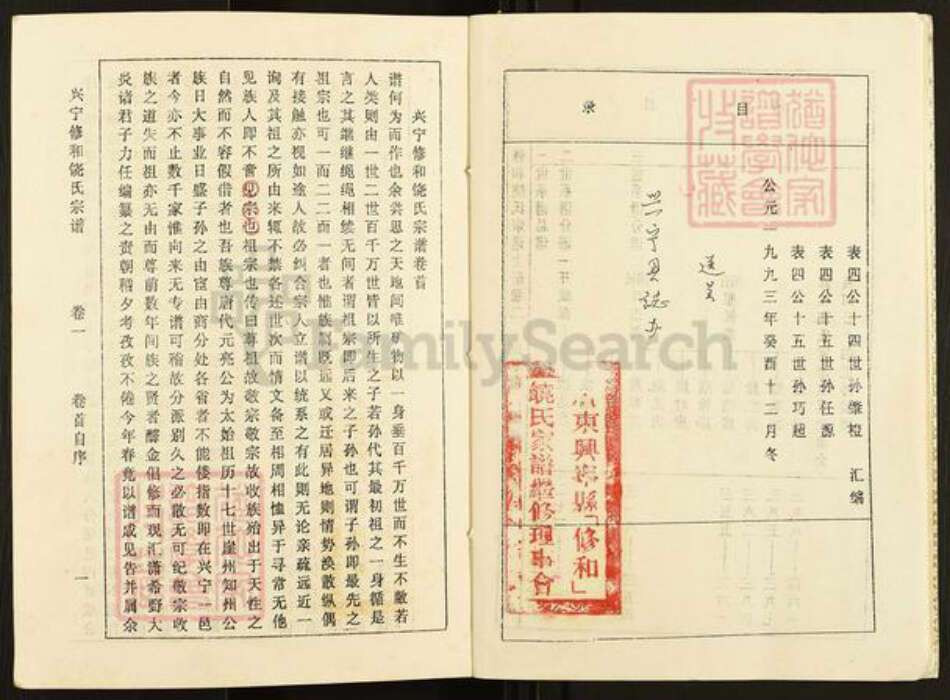 目
录
表四公十四世孙
汇编
表四公十五世孙任源
表四公十五世孙巧超
公元一九九三年癸酉十二月冬
送呈
兴宁县志办
广東興寧縣「修和」
饒氏家譜繼修理事會
FamilySearch
兴宁修和饶氏宗谱卷首
谱何为而作也余尝思之天地间唯矿物以一身垂百千万世而不生不敝若
人类则由一世二世百千万世皆以所生之子若孙代其最初祖之一身循是
言之其继继绳绳相续无间者谓祖宗即后来之子孙也可谓子孙即最先之
祖宗也可一而二二而一者也惟族制既远又或迁居异地则情势涣散纵偶
有接触亦视如途人故必纠合宗人立谱以统系之有此则无论亲疏远近一
询及其祖之所由来辄不禁各述世次而情文备至相周相恤异于寻常无他
见族人即不啻见宗也祖宗也传曰尊祖故敬宗敬宗故收族殆出于天性之
自然而不容假借者也吾族尊唐代元亮公为太始祖历十七世崖州知州公
族日大事业日盛子孙之由宦由商分处各省者不能偻指数即在兴宁一邑
者今亦不止数千家惟向来无专谱可稽故分派别久之必散无可纪敬宗收
族之道失而祖亦无由而尊前数年间族之贤者醵金倡修而观汇潇希野大
炎诸君子力任编纂之责朝稽夕考孜孜不倦今年春竟以谱成见告并属余
兴宁修和饶氏宗谱
卷一
卷首自序
一